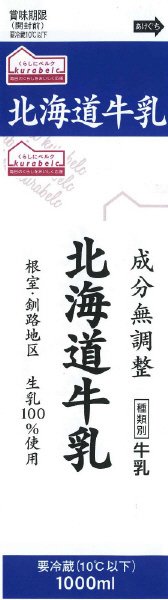 賞味期限
(開封前)
要冷蔵10℃以下
あけぐち
くらしにベルク
kurabelc
毎日のくらしをおいしく応援
北海道牛乳
くらしにベルク
kurabelc
成分無調整
種類別 牛乳
北海道牛乳
根室・釧路地区 生乳100%使用
要冷蔵(10℃以下)
1000ml